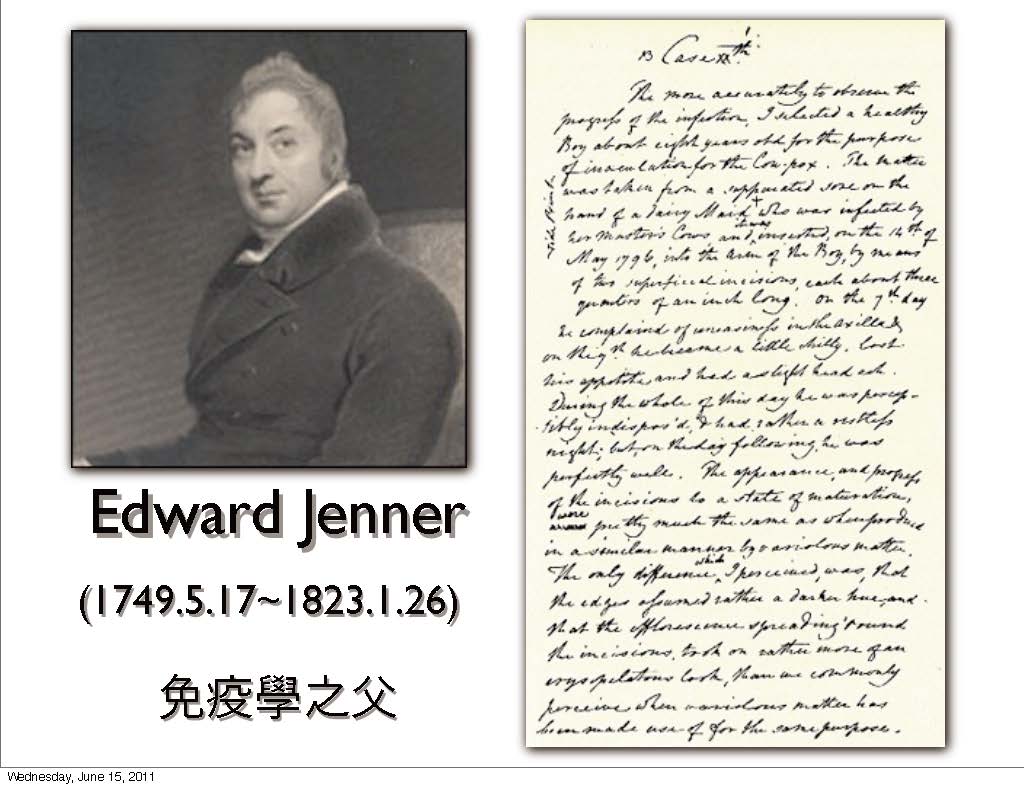 Edward Jenner
(1749.5.17~1823.1.26)
免疫學之父
Case
The more accurately to observe the
progress of the infection, I selected a healthy
Boy about eight years old for the purpose
of inoculation for the Cow-pox. The matter
was taken from a suppurated sore on the
hand of a dairy Maid + who was infected by
her Master's Cows and it was inserted, on the 14th of
May 1796, into the arm of the Boy, by means
of two superficial incisions, each about three
quarters of an inch long. On the 7th day
he complain'd of uneasiness in the axilla &
on the 9th he became a little chilly, lost
his appetite and had a slight head ach.
During the whole of this day he was percep-
tibly indispos'd, & had rather a restless
night; but, on the day following, he was
perfectly well. The appearance, and progress
of the incisions to a state of maturation,
were pretty much the same as when produc'd
in a similar manner by variolous matter.
The only difference, which I perceived, was, that
the edges assumed rather a darker hue, and
that the efflorescence spreading round
the incisions, took on rather more of an
erysipelatous look, than we commonly
perceive when variolous matter has
been made use of for the same purpose.
Wednesday, June 15, 2011